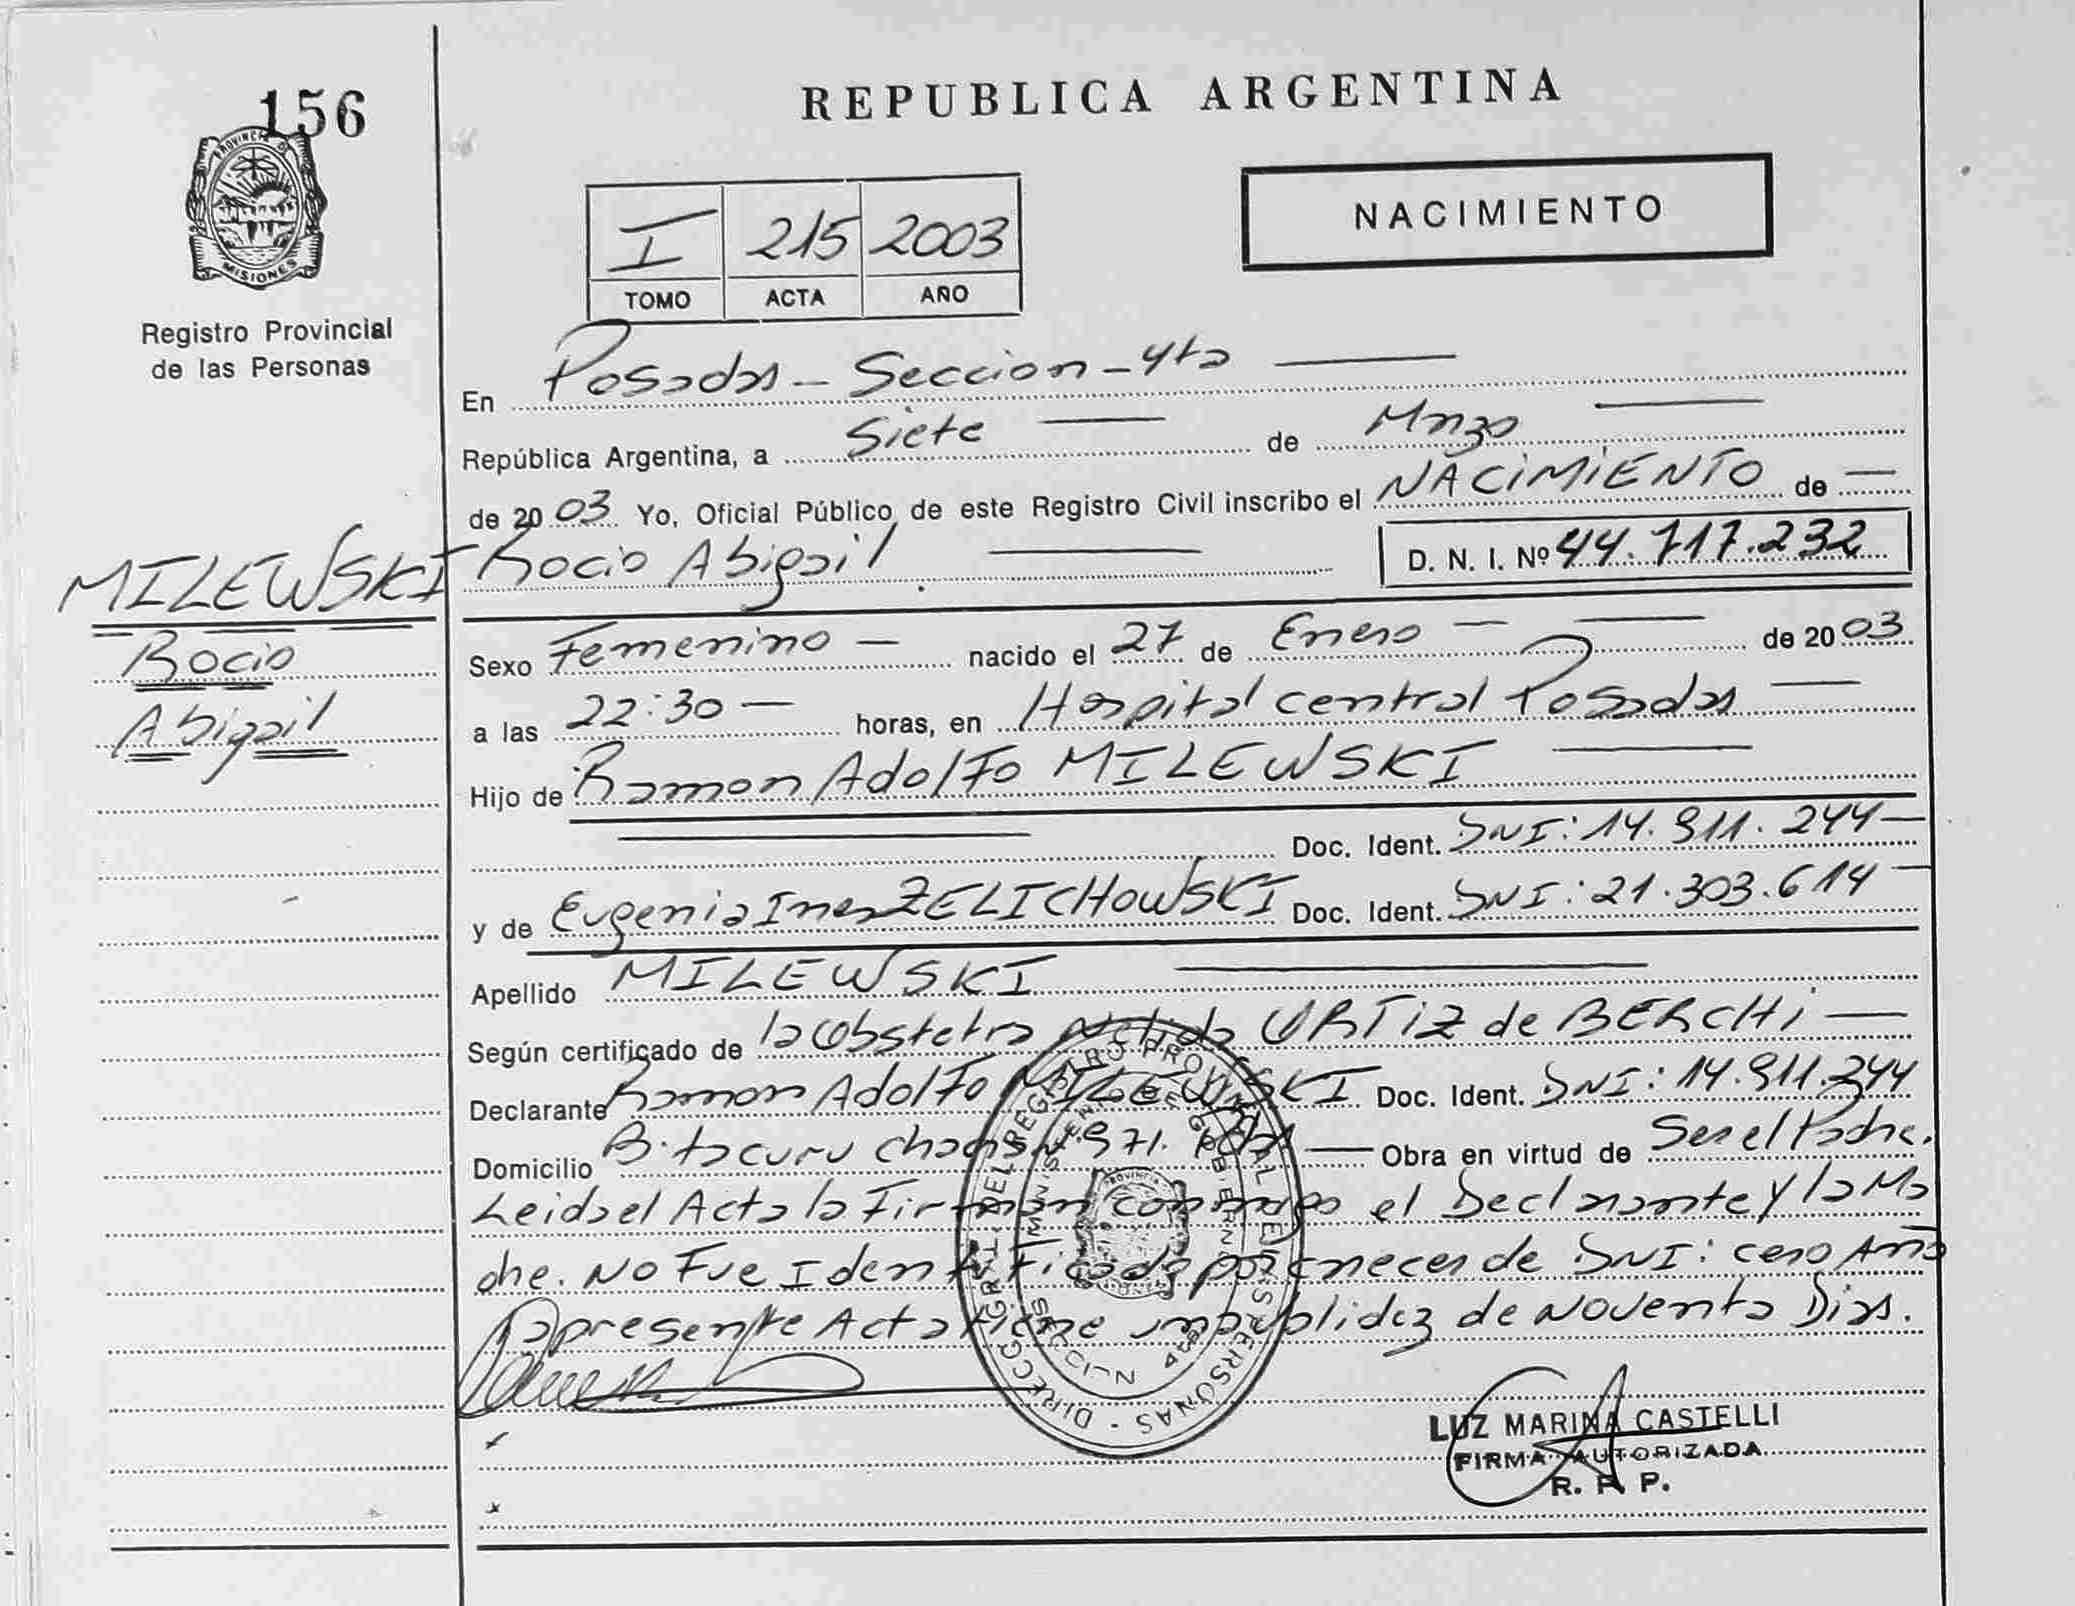 156
REPUBLICA ARGENTINA
PROVINCIA DE
MISIONES
Registro Provincial
de las Personas
I 215 2003
TOMO ACTA AÑO
NACIMIENTO
En Posadas - Seccion - 4ta
República Argentina, a Siete de Marzo
de 2003 Yo, Oficial Público de este Registro Civil inscribo el NACIMIENTO de
MILEWSKI Rocio Abigail D. N. I. Nº 44.717.232
Rocio
Abigail
Sexo Femenino nacido el 27 de Enero de 2003
a las 22:30 horas, en Hospital central Posadas
Hijo de Ramon Adolfo MILEWSKI
Doc. Ident. DNI: 14.911.244
y de Eugenia Ines ZELICHOWSKI Doc. Ident. DNI: 21.303.614
Apellido MILEWSKI
Según certificado de la Obstetra Nelida ORTIZ de BERCHI
Declarante Ramon Adolfo MILEWSKI Doc. Ident. DNI: 14.911.244
Domicilio B. tacuru 971. Obra en virtud de Ser el Padre.
Leida el Acta la Firman conmigo el Declarante y la Ma
dre. No Fue Identificada por carecer de DNI: cero Años
La presente Acta tiene una validez de Noventa Dias.
DIRECC. GRAL. DEL REGISTRO PROVINCIAL DE LAS PERSONAS
MINISTERIO DE GOBIERNO
LUZ MARINA CASTELLI
FIRMA AUTORIZADA
R. P. P.